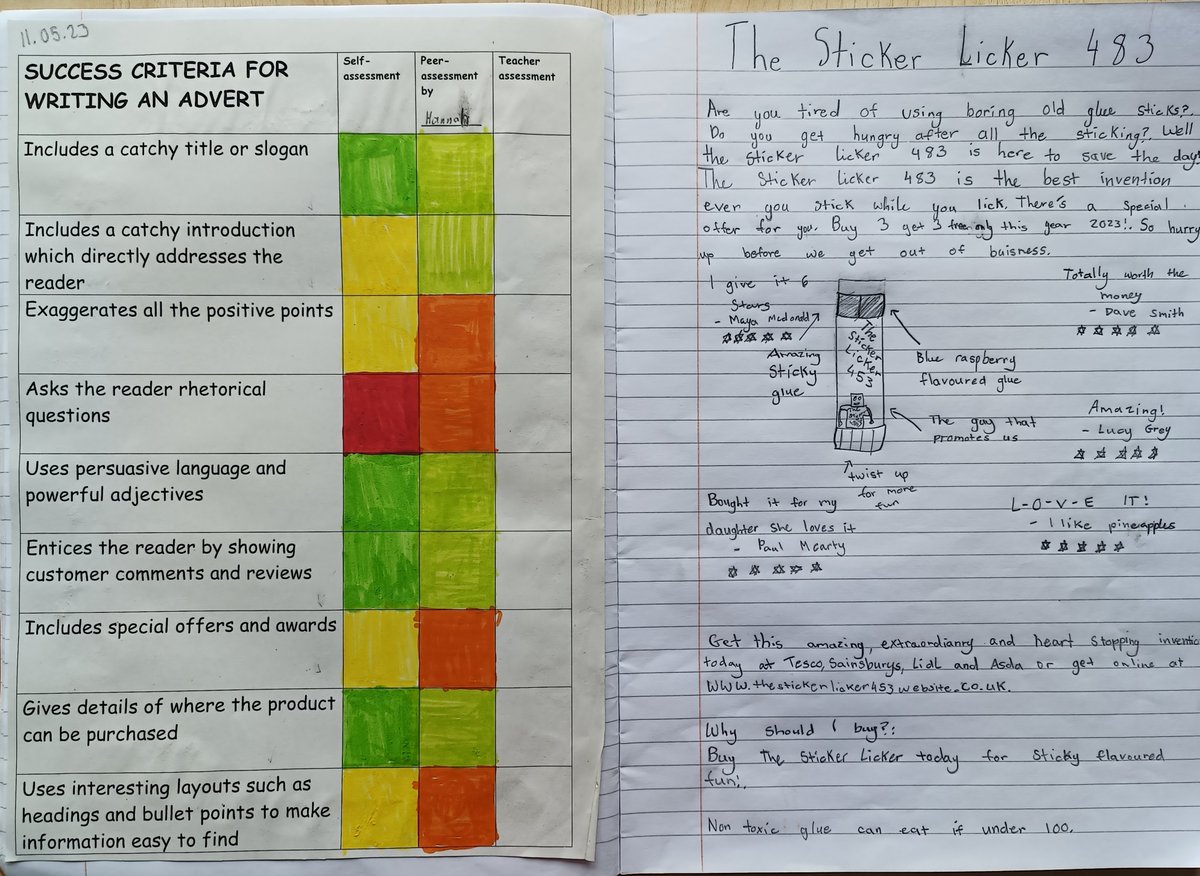 11.05.23
SUCCESS CRITERIA FOR
WRITING AN ADVERT
Self-
assessment
Peer-
assessment
by
Hannah
Teacher
assessment
Includes a catchy title or slogan
Includes a catchy introduction
which directly addresses the
reader
Exaggerates all the positive points
Asks the reader rhetorical
questions
Uses persuasive language and
powerful adjectives
Entices the reader by showing
customer comments and reviews
Includes special offers and awards
Gives details of where the product
can be purchased
Uses interesting layouts such as
headings and bullet points to make
information easy to find
The Sticker Licker 483
Are you tired of using boring old glue sticks?
Do you get hungry after all the sticking? Well
the sticker licker 483 is here to save the day!
The Sticker licker 483 is the best invention
ever you stick while you lick. There's a special
offer for you. Buy 3 get 3 free only this year 2023!. So hurry
up before we get out of buisness.
I give it 6
Stars
- Maya Mcdonald
Totally worth the
money
- Dave Smith
Amazing
Sticky
glue
The
Sticker
Licker
453
Blue raspberry
flavoured glue
The guy that
promotes us
Amazing!
- Lucy Grey
twist up
for more
fun
Bought it for my
daughter she loves it
- Paul Mcarty
L-O-V-E IT!
- I like pineapples
Get this amazing, extraordianry and heart stopping inventio
today at Tesco, Sainsburys, Lidl and Asda or get online at
www.thestickerlicker453website.co.uk.
Why should I buy?:
Buy The Sticker Licker today for Sticky flavoured
fun!.
Non toxic glue can eat if under 100.